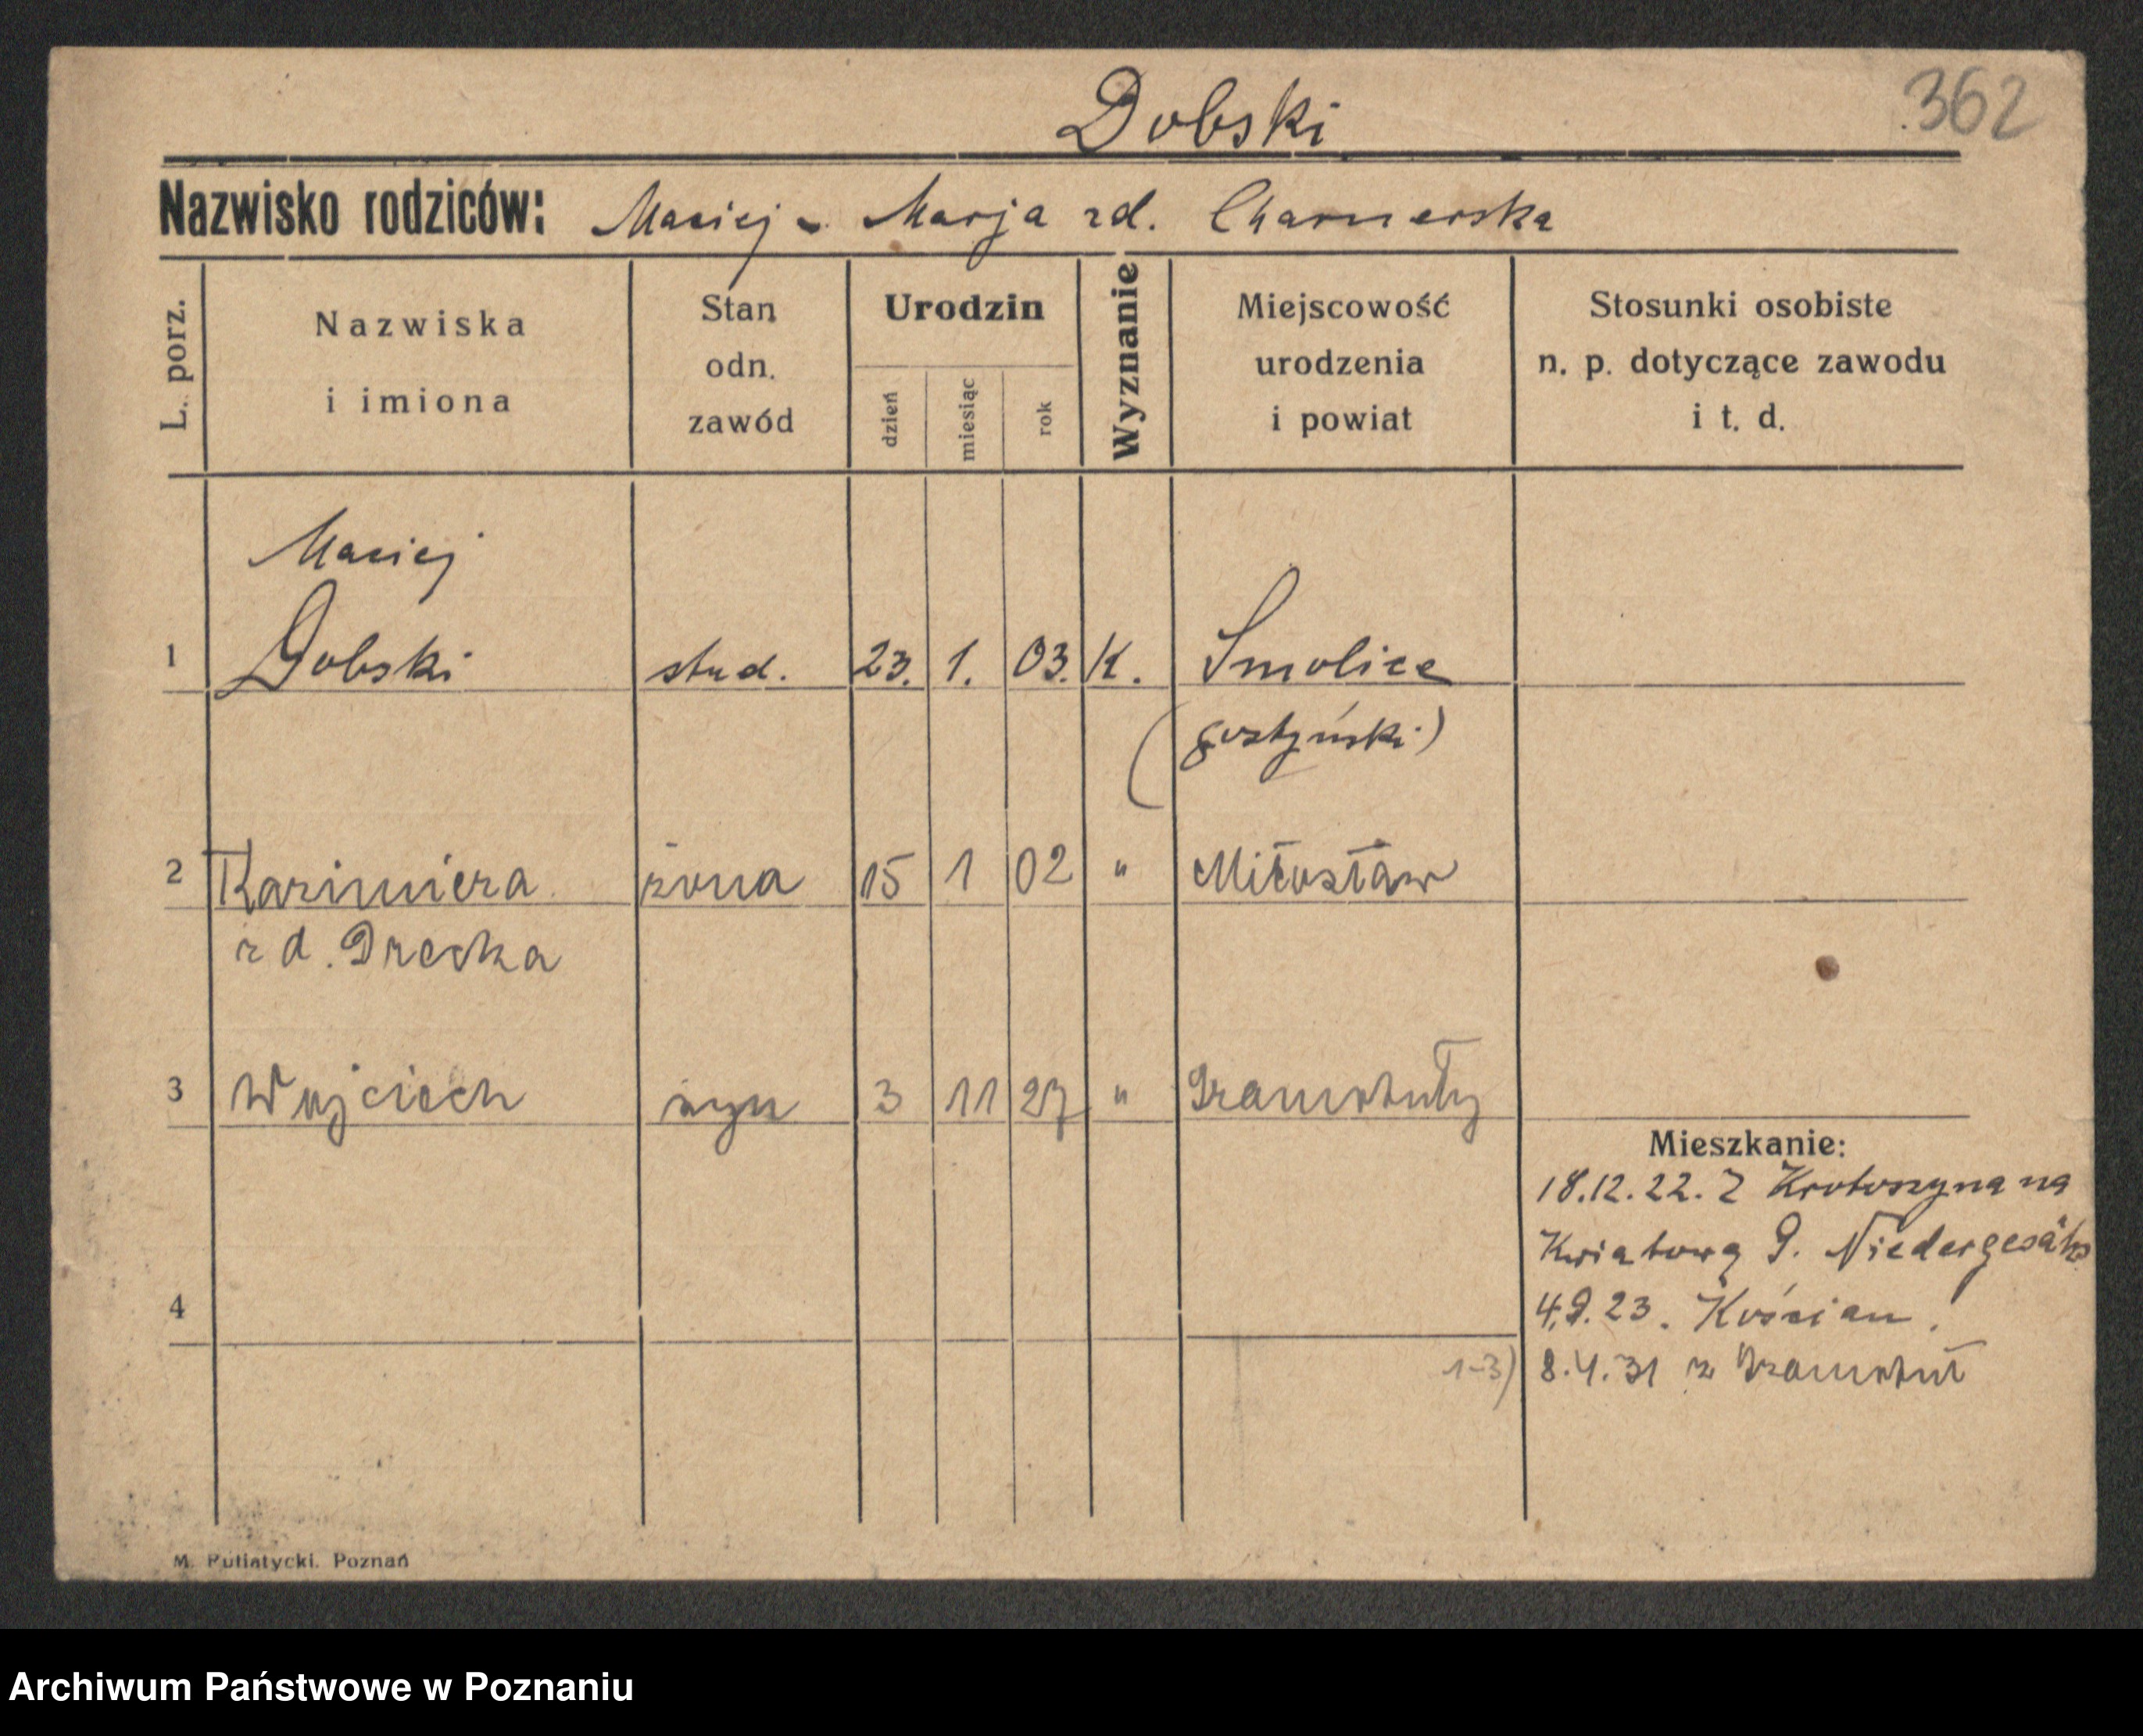 Dobski
362
Nazwisko rodziców: Maciej - Marja zd. Charnerska
L. porz.
Nazwiska
i imiona
Stan
odn.
zawód
Urodzin
dzień
miesiąc
rok
Wyznanie
Miejscowość
urodzenia
i powiat
Stosunki osobiste
n. p. dotyczące zawodu
i t. d.
Maciej
1 Dobski stud. 23. 1. 03. K. Smolice
(gostyński)
2 Kazimiera żona 15 1 02 " Miłosław
zd.
3 Wojciech syn 3 11 27 " Szamotuły
Mieszkanie:
18.12.22. Z Krotoszyna na
Kwiatową 9. Niedergesäss
4
4.9.23. Kościan.
1-3) 8.4.31 z Szamotuł
M. Putiatycki. Poznań
Archiwum Państwowe w Poznaniu